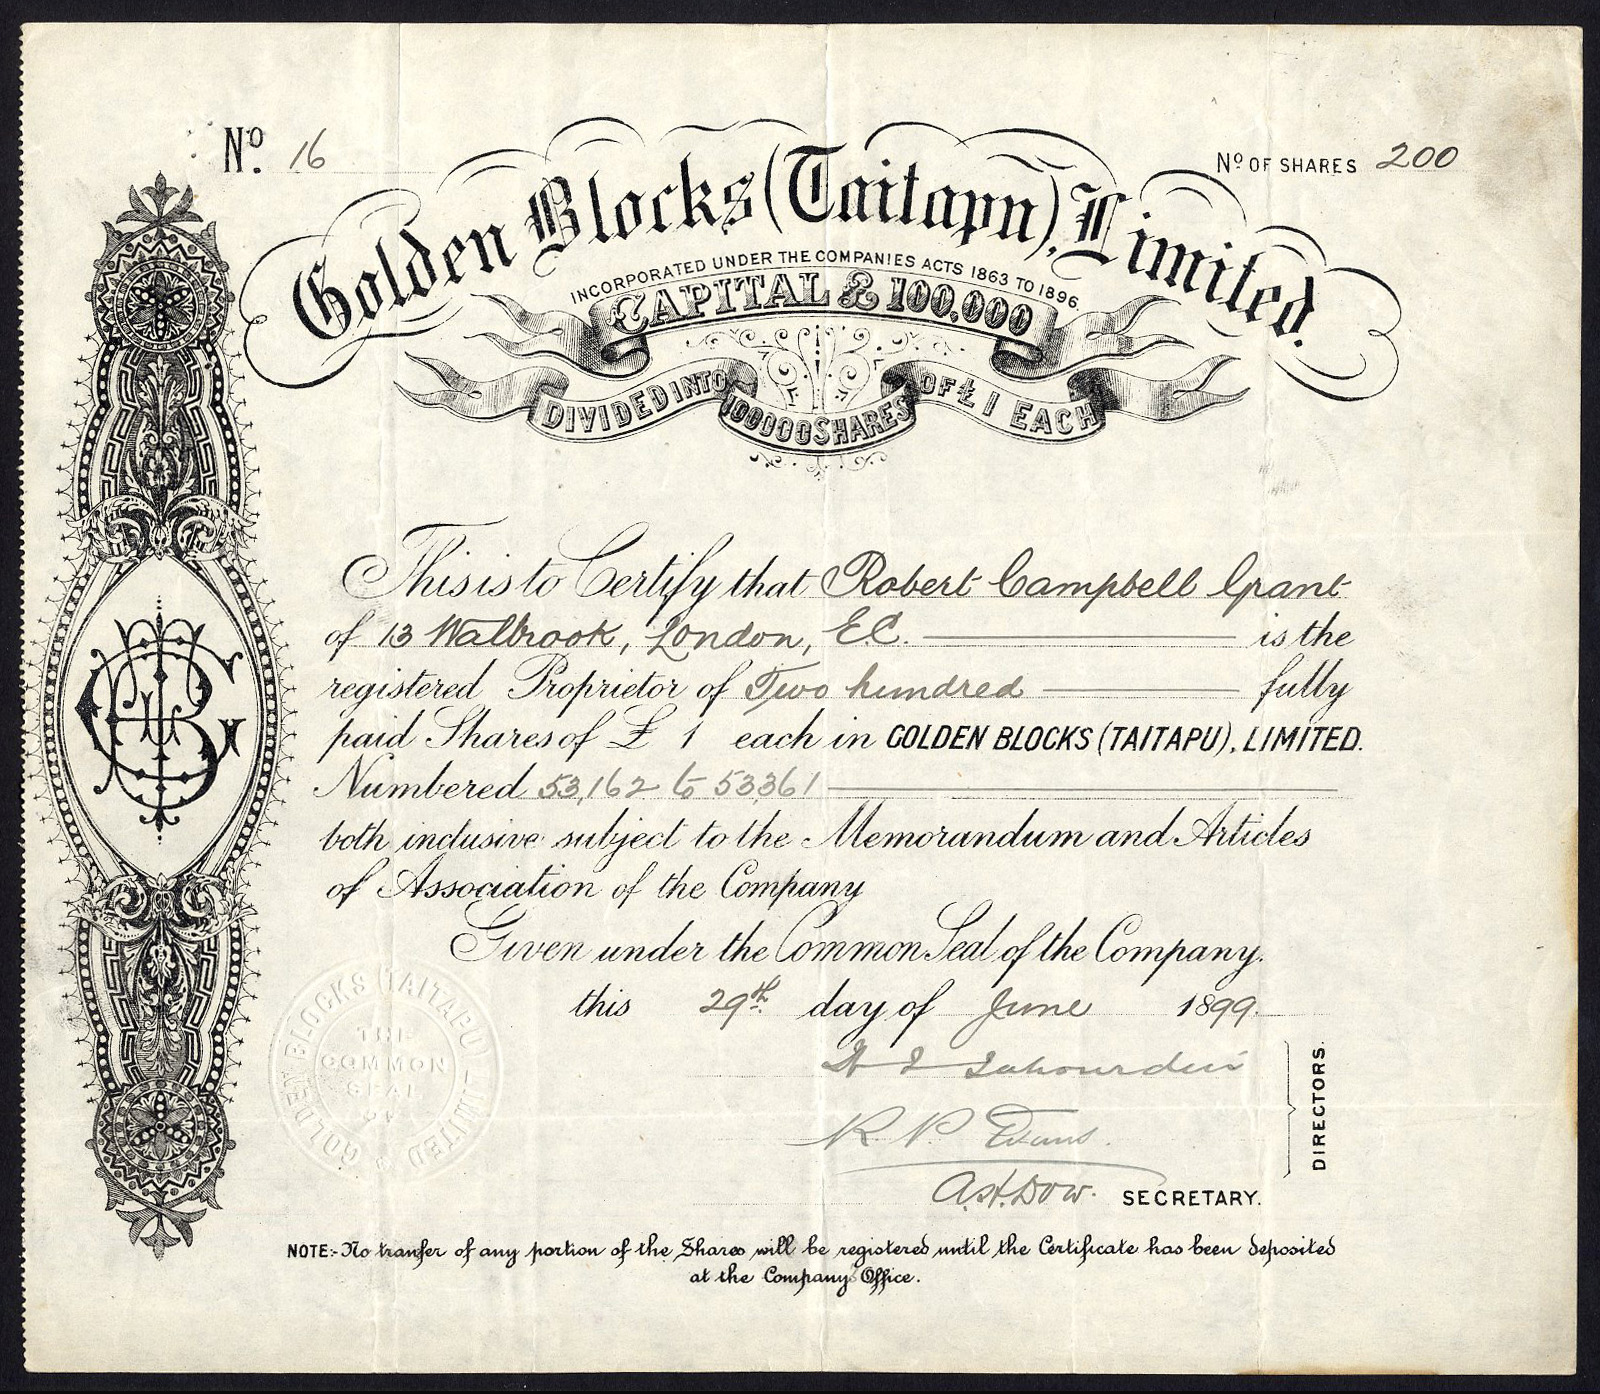 No. 16
No OF SHARES 200
Golden Blocks (Taitapu), Limited.
INCORPORATED UNDER THE COMPANIES ACTS 1863 TO 1896
CAPITAL £100,000
DIVIDED INTO 100000 SHARES OF £1 EACH
This is to Certify that Robert Campbell Grant
of 13 Walbrook, London, E.C. is the
registered Proprietor of Two hundred fully
paid Shares of £ 1 each in GOLDEN BLOCKS (TAITAPU), LIMITED.
Numbered 53,162 to 53361
both inclusive subject to the Memorandum and Articles
of Association of the Company
Given under the Common Seal of the Company.
this 29th day of June 1899.
GOLDEN BLOCKS (TAITAPU) LIMITED
THE
COMMON
SEAL
OF
R. P. Evans.
DIRECTORS.
A.H. Dow. SECRETARY.
NOTE:- No transfer of any portion of the Shares will be registered until the Certificate has been deposited
at the Company's Office.